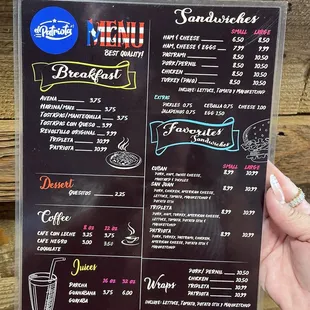 El Patriota
MENU
BEST QUALITY!
Breakfast
AVENA
HARINA/MAIZ 3.75
TOSTADAS/MANTEQUILLA 3.75
TOSTADAS CON QUESO 3.99
REVOLTILLO ORIGINAL 7.99
TRIPLETA 9.99
PATRIOTA 9.99
Dessert
QUESITOS 2.25
Coffee
8 oz 12 oz
CAFE CON LECHE 3.25 3.75
CAFE NEGRO 3.00
COQUILATE
Juices
16 oz 32 oz
PARCHA
GUANABANA 3.75 6.00
GUAYABA
Sandwiches
SMALL LARGE
HAM & CHEESE 6.50 8.50
HAM, CHEESE & EGGS 7.99 9.99
PASTRAMI 8.50 10.50
PORK/PERNIL 8.50 10.50
CHICKEN 8.50 10.50
TURKEY (PAVO) 8.50 10.50
INCLUDE: LETTUCE, TOMATO, POTATO & MAYOKETCHUP
EXTRAS
PICKLES 0.75 CEBOLLA 0.75 CHEESE 1.00
JALAPENOS 0.75 EGG 1.50
Favorites
Sandwiches
SMALL LARGE
CUBAN 8.99 10.99
PORK, HAM, SWISS CHEESE,
MUSTARD & PICKLES
SAN JUAN 8.99 10.99
PORK, CHICKEN, AMERICAN CHEESE,
LETTUCE, TOMATO,
MAYOKETCHUP &
POTATO STIX
TRIPLETA 8.99 10.99
PORK, HAM, TURKEY, AMERICAN CHEESE,
LETTUCE, TOMATO, POTATO STIX &
MAYOKETCHUP
PATRIOTA 8.99 10.99
PORK, TURKEY, PASTRAMI, CHICKEN,
AMERICAN CHEESE, POTATO STIX &
MAYOKETCHUP
Wraps
PORK/PERNIL 10.50
CHICKEN 10.50
TRIPLETA 10.99
PATRIOTA 10.99
INCLUDE: LETTUCE, TOMATO, POTATO STIX & MAYOKETCHUP